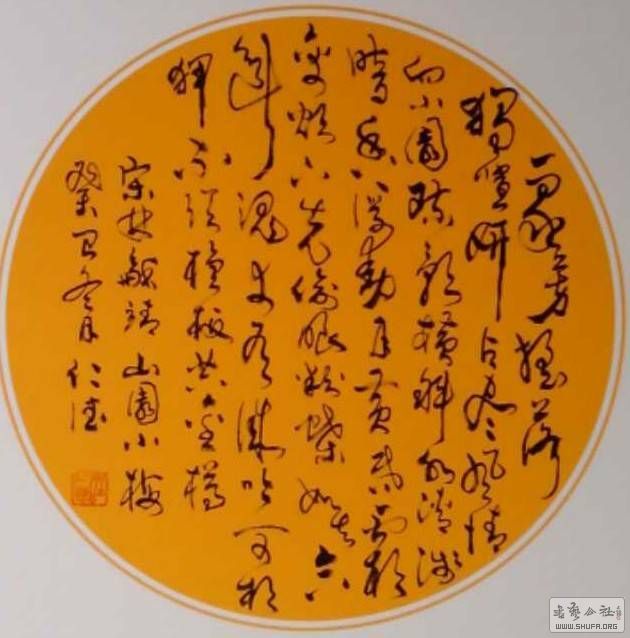 衆芳摇落
獨喧妍占尽風情
向小園疏影横斜水清浅
暗香浮動月黄昏霜
禽欲下先偷眼粉蝶如知合
断魂幸有微吟可相
狎不须檀板共金樽
宋林和靖山園小梅
癸卯冬月仁德
书艺公社
WWW.SHUFA.ORG